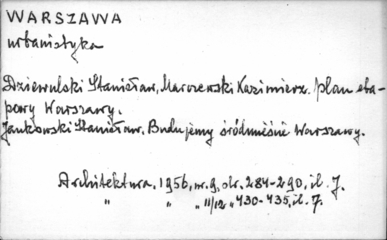 WARSZAWA
urbanistyka
Dziewulski Stanisław, Marczewski Kazimierz. Plan eta-
powy Warszawy.
Jankowski Stanisław. Budujemy śródmieście Warszawy.
Architektura, 1956, nr. 9, str. 284-290, il. 7.
" " " 11/12 " 430-435, il. 7.